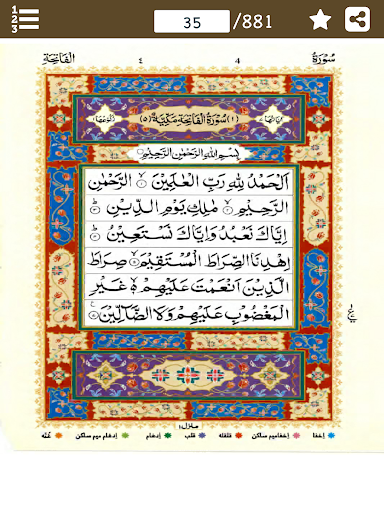 35 /881
سُورَةُ 4 ٤ الْفَاتِحَة
(١) سُوْرَةُ الْفَاتِحَةِ مَكِّيَّةٌ (٥)
بِسْمِ اللّٰهِ الرَّحْمٰنِ الرَّحِيْمِ
اَلْحَمْدُ لِلّٰهِ رَبِّ الْعٰلَمِيْنَ ۙ الرَّحْمٰنِ
الرَّحِيْمِ ۙ مٰلِكِ يَوْمِ الدِّيْنِ
اِيَّاكَ نَعْبُدُ وَاِيَّاكَ نَسْتَعِيْنُ
اِهْدِنَا الصِّرَاطَ الْمُسْتَقِيْمَ ۙ صِرَاطَ
الَّذِيْنَ اَنْعَمْتَ عَلَيْهِمْ ۙ غَيْرِ
الْمَغْضُوْبِ عَلَيْهِمْ وَلَا الضَّآلِّيْنَ
منزل ١
اخفا اخفامیم ساکن قلقله قلب ادغام ادغام میم ساکن غُنّه